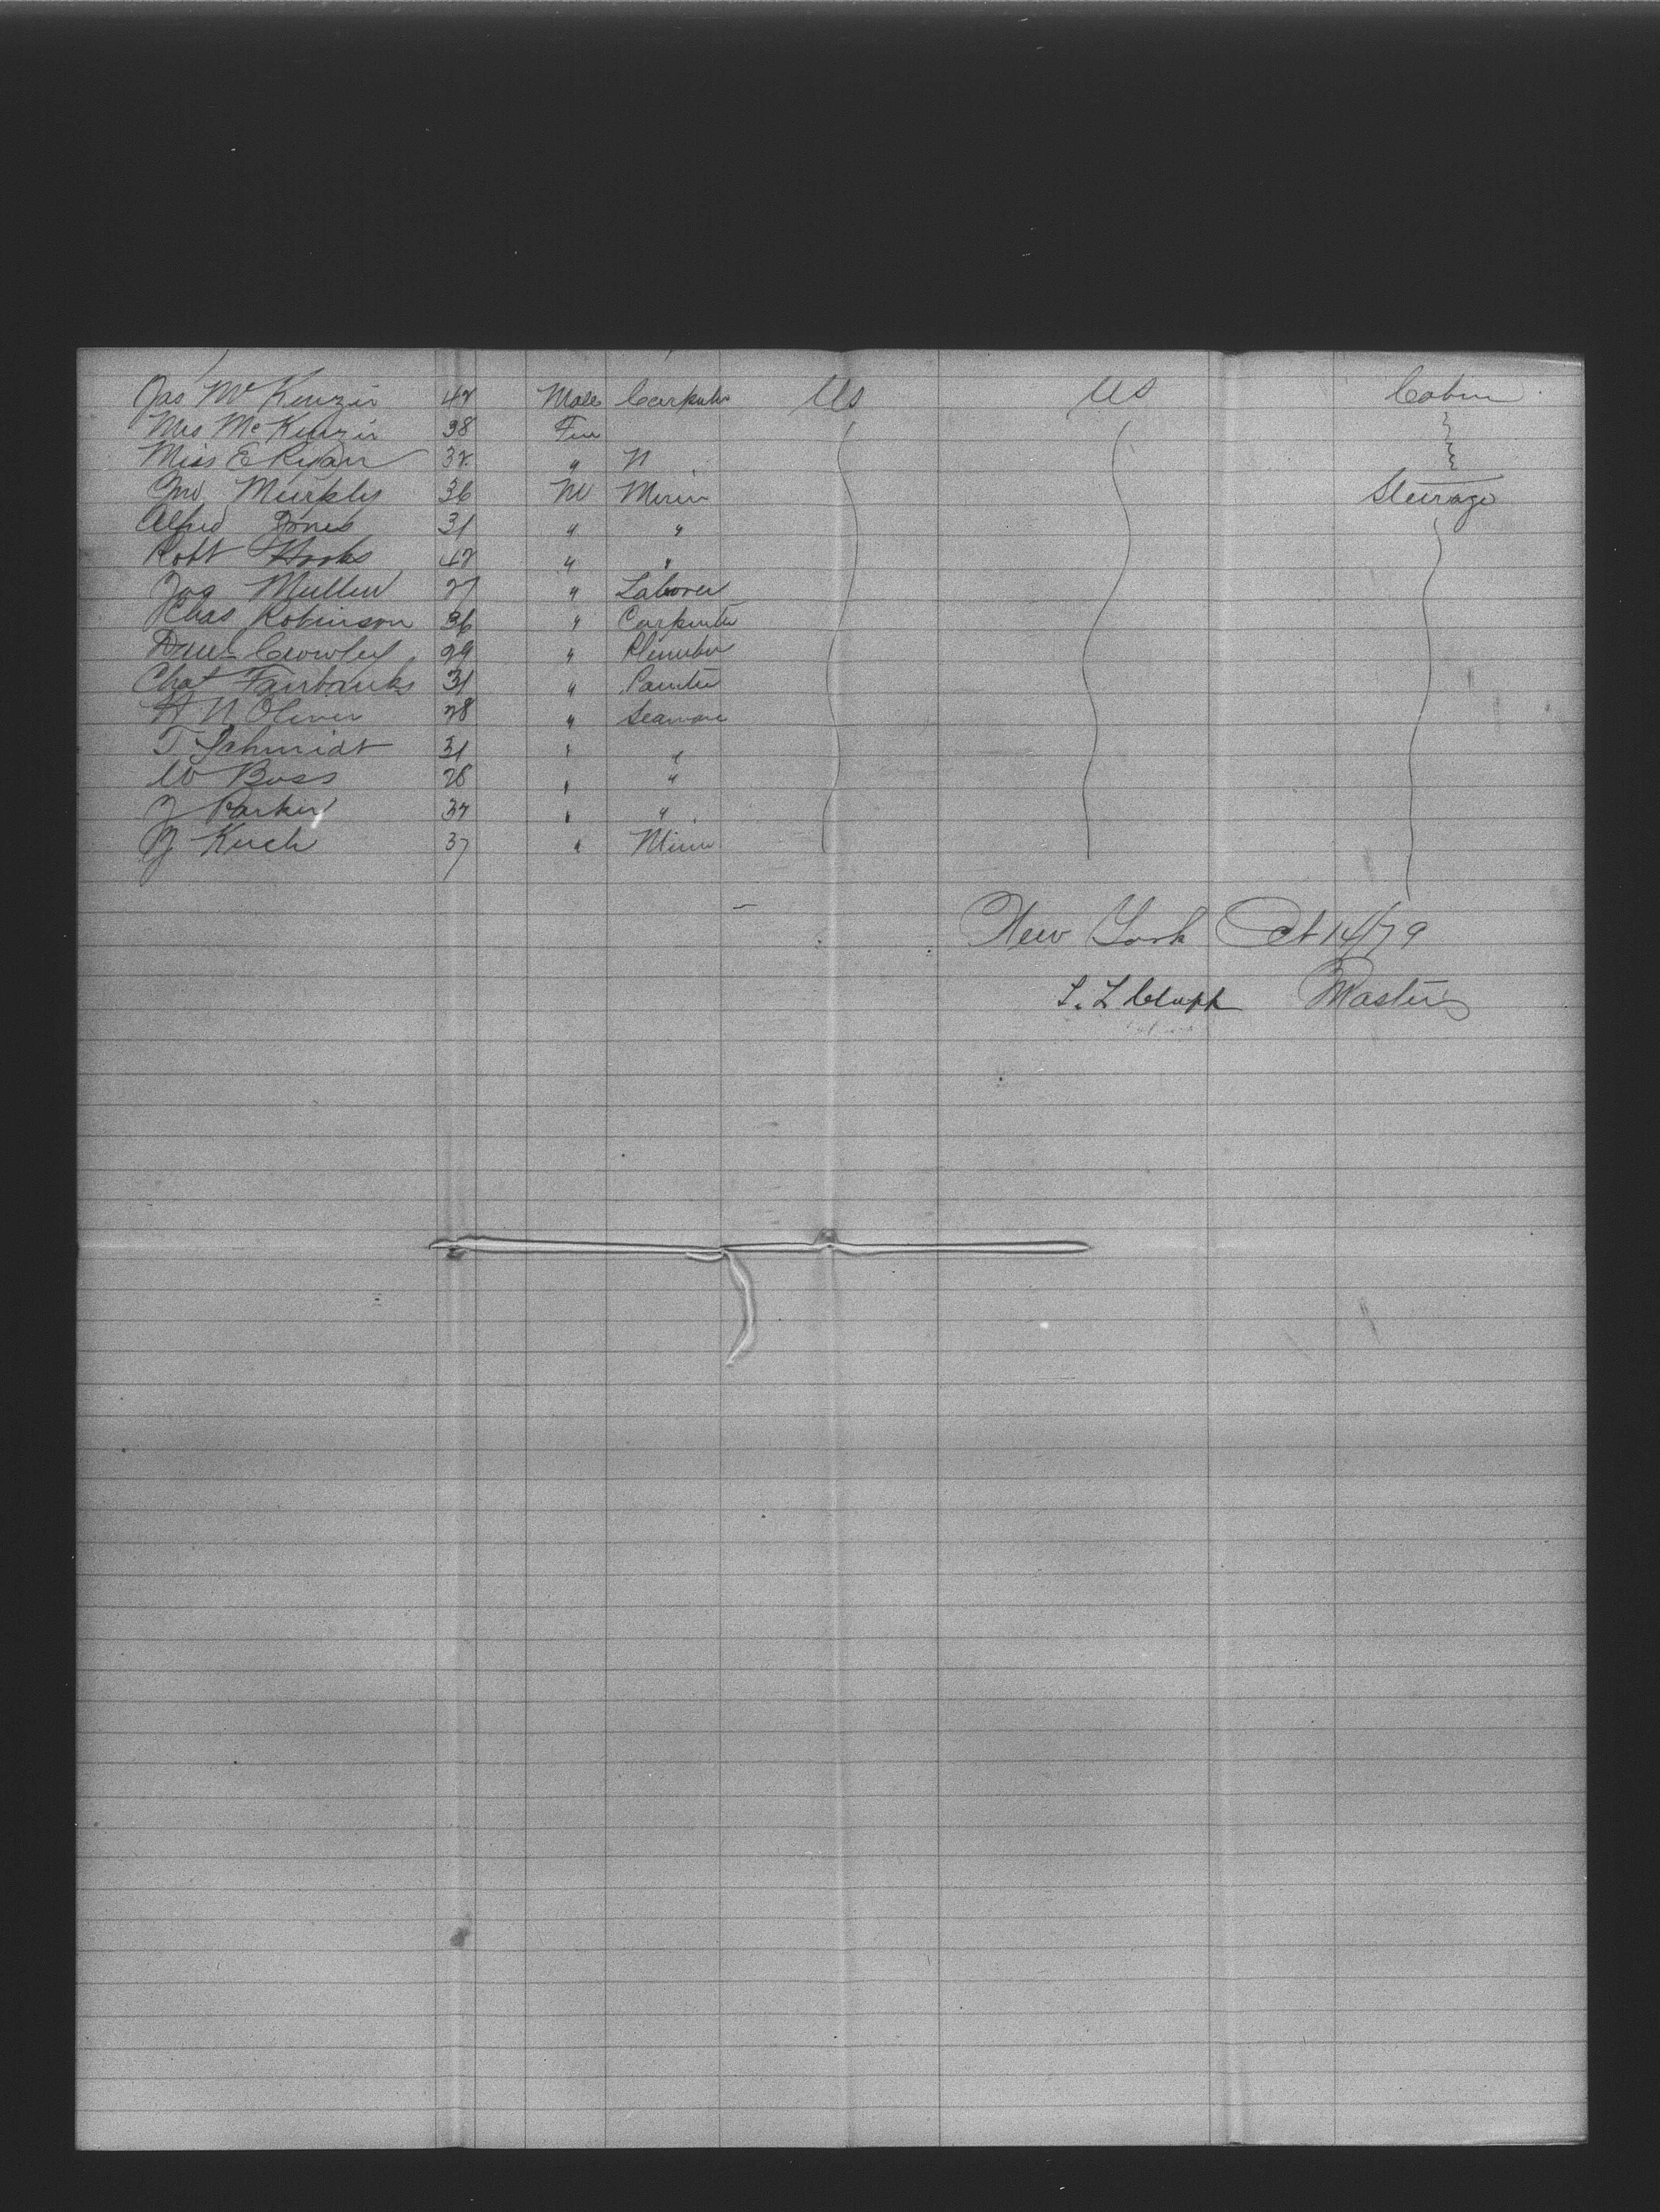 Jas McKenzie 42 Male Carpenter US US Cabin
Mrs McKenzie 38 Fem
Miss E Ryan 32 " N
Jno Murphy 36 M Miner Steerage
Alfred Jones 31 " "
Robt Hooks 42 " "
Jas Mullen 27 " Laborer
Chas Robinson 36 " Carpenter
Danl Crowley 29 " Plumber
Chas Fairbanks 31 " Painter
H N Oliver 28 " Seaman
T Schmidt 31 " "
W Bass 28 " "
J Parker 32 " "
J Kuch 37 " Miner
New York Oct 14/79
S. L Clapp Master